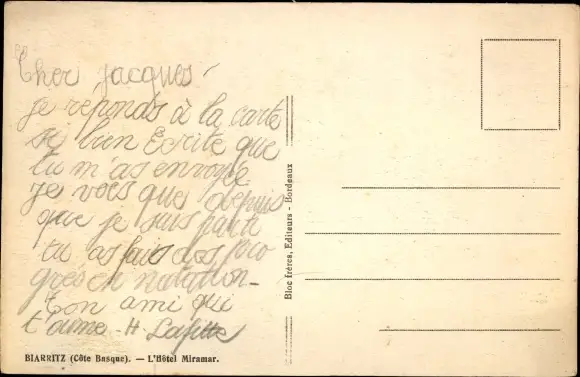 Cher Jacques
je réponds à la carte
si bien Ecrite que
tu m'as envoyée.
Je vois que depuis
que je suis parti
tu as fais des pro
grés en natation_
Ton ami qui
t'aime - H. Lafitte
Bloc frères, Editeurs - Bordeaux
BIARRITZ (Côte Basque). — L'Hôtel Miramar.